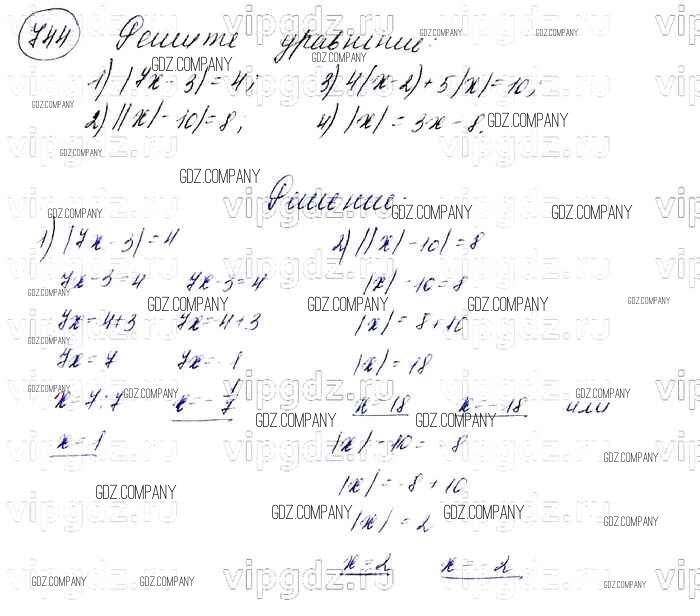 744 Решите уравнение:
1) |7x - 3| = 4; 3) 4(x-2) + 5|x| = 10;
2) ||x| - 10| = 8; 4) |x| = 3x - 8.
Решение:
1) |7x - 3| = 4 2) ||x| - 10| = 8
7x - 3 = 4 7x - 3 = 4 |x| - 10 = 8
7x = 4+3 7x = 4+3 |x| = 8 + 10
7x = 7 7x = - 1 |x| = 18
x = 7:7 x = - 1/7 x = 18 x = - 18 или
x = 1 |x| - 10 = - 8
|x| = -8 + 10
|x| = 2
x = 2 x = - 2